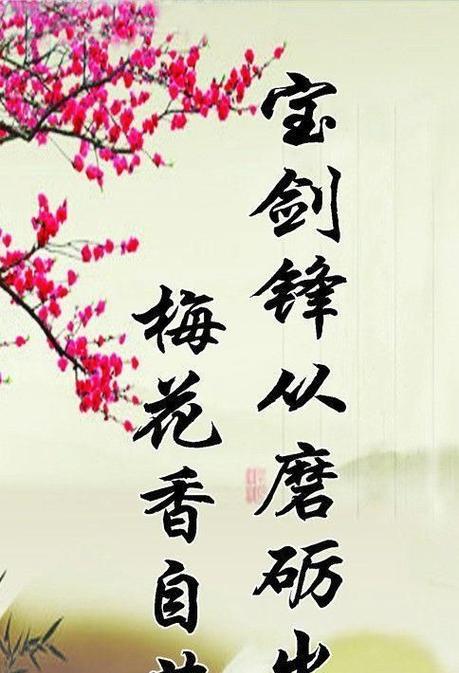 宝剑锋从磨砺出
梅花香自